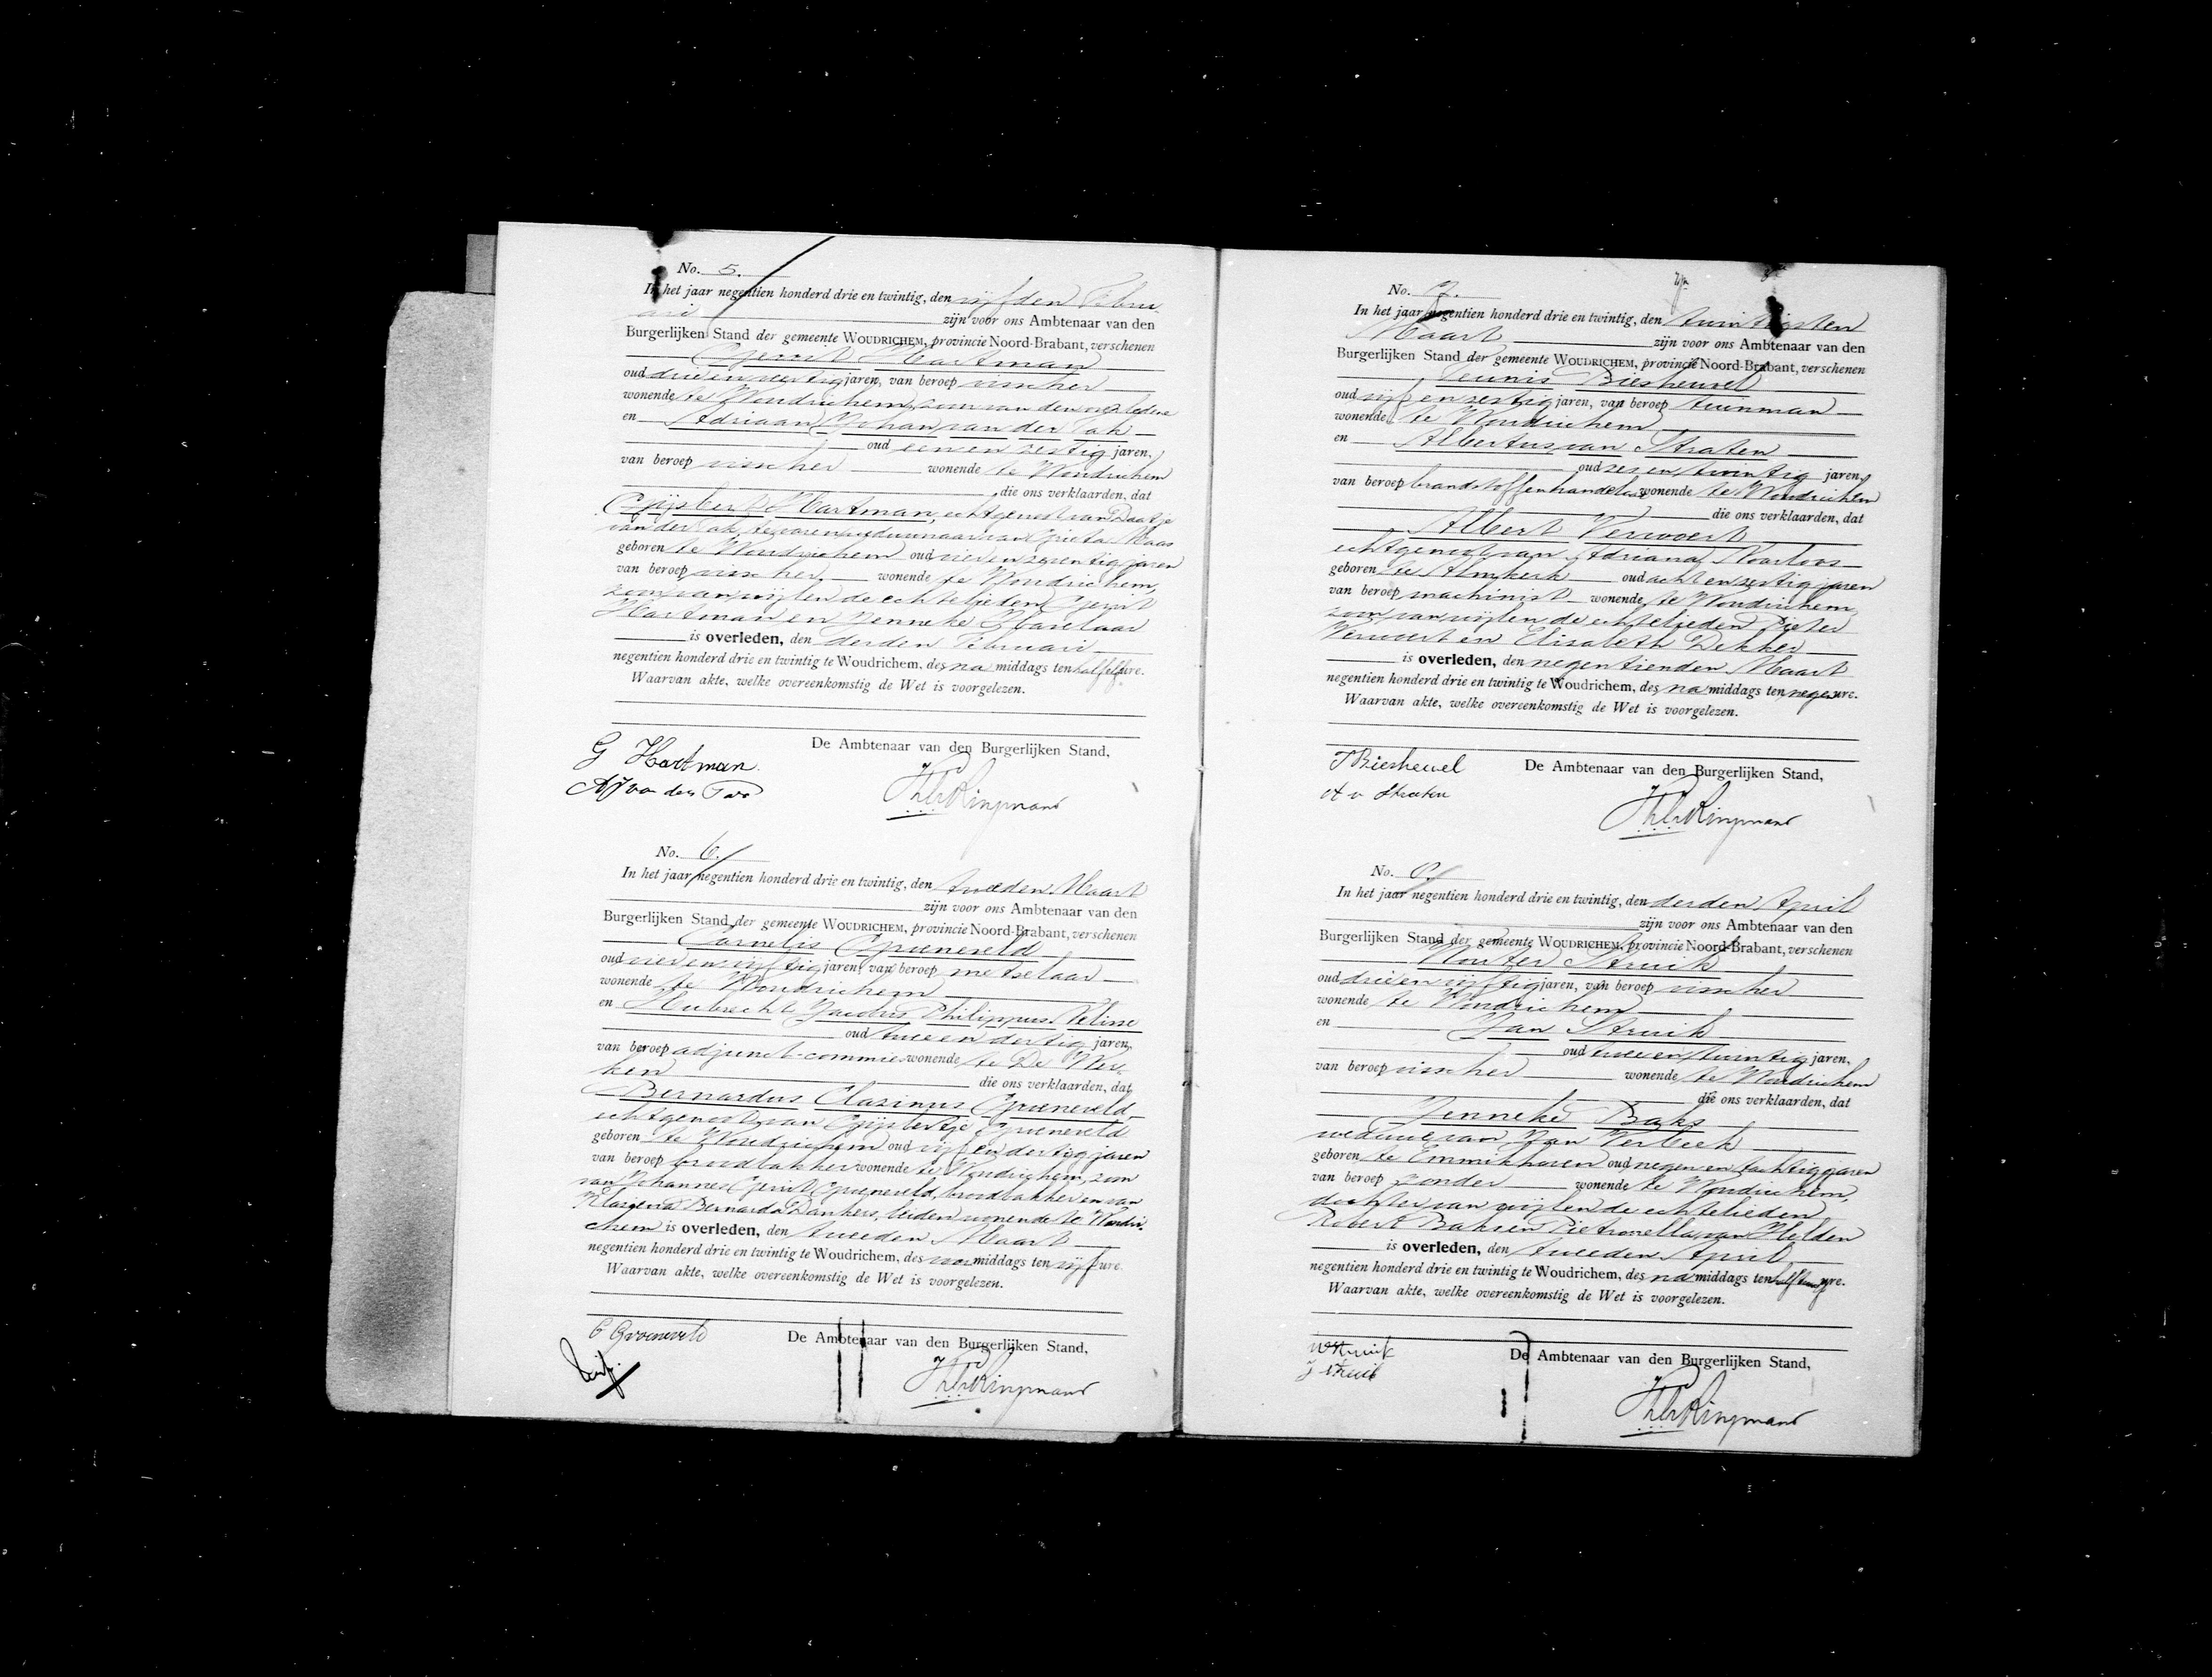 No. 5.
In het jaar negentien honderd drie en twintig, den vijfden Febru
ari zijn voor ons Ambtenaar van den
Burgerlijken Stand der gemeente WOUDRICHEM, provincie Noord-Brabant, verschenen
Gerrit Hartman
oud drie en veertig jaren, van beroep visscher
wonende te Woudrichem, zoon van den overledene
en Adriaan Johan van der Pah
oud een en zestig jaren,
van beroep visscher wonende te Woudrichem
die ons verklaarden, dat
Gijsbert Hartman, echtgenoot van Daatje
van der Pah, te voren weduwnaar van Grieta Maas
geboren te Woudrichem oud vier en zeventig jaren
van beroep visscher, wonende te Woudrichem,
zoon van wijlen de echtelieden Gerrit
Hartman en Jenneke Haselaar
is overleden, den derden Februari
negentien honderd drie en twintig te Woudrichem, des na middags ten half elf ure.
Waarvan akte, welke overeenkomstig de Wet is voorgelezen.
De Ambtenaar van den Burgerlijken Stand,
G Hartman.
AJ van der
No. 6.
In het jaar negentien honderd drie en twintig, den tweeden Maart
zijn voor ons Ambtenaar van den
Burgerlijken Stand der gemeente WOUDRICHEM, provincie Noord-Brabant, verschenen
Cornelis Groeneveld
oud vier en vijftig jaren, van beroep metselaar
wonende te Woudrichem
en Hubrecht Jacobus Philippus Velisse
oud twee en dertig jaren,
van beroep adjunct-commies wonende te De Wer
ken die ons verklaarden, dat
Bernardus Clasinus Groeneveld
echtgenoot van Gijsbertje Groeneveld
geboren te Woudrichem oud vijf en dertig jaren
van beroep broodbakker wonende te Woudrichem, zoon
van Johannes Gerrit Groeneveld, broodbakker en van
Klasina Bernarda Dankers, beiden wonende te Woudri
chem is overleden, den tweeden Maart
negentien honderd drie en twintig te Woudrichem, des voormiddags ten vijf ure.
Waarvan akte, welke overeenkomstig de Wet is voorgelezen.
C Groeneveld De Ambtenaar van den Burgerlijken Stand,
No. 7.
In het jaar negentien honderd drie en twintig, den twintigsten
Maart zijn voor ons Ambtenaar van den
Burgerlijken Stand der gemeente WOUDRICHEM, provincie Noord-Brabant, verschenen
Teunis Biesheuvel
oud vijf en zestig jaren, van beroep tuinman
wonende te Woudrichem
en Albertus van Straten
oud zes en twintig jaren,
van beroep brandstoffenhandelaar wonende te Woudrichem
die ons verklaarden, dat
Albert Vervoert
echtgenoot van Adriana Voorloos
geboren te Almkerk oud acht en zestig jaren
van beroep machinist wonende te Woudrichem
zoon van wijlen de echtelieden Pieter
Vervoert en Elisabeth Dekker
is overleden, den negentienden Maart
negentien honderd drie en twintig te Woudrichem, des na middags ten negen ure.
Waarvan akte, welke overeenkomstig de Wet is voorgelezen.
T Biesheuvel De Ambtenaar van den Burgerlijken Stand,
A v Straten
No. 8.
In het jaar negentien honderd drie en twintig, den derden April
zijn voor ons Ambtenaar van den
Burgerlijken Stand der gemeente WOUDRICHEM, provincie Noord-Brabant, verschenen
Wouter Struik
oud drie en vijftig jaren, van beroep visscher
wonende te Woudrichem
en Jan Struik
oud twee en twintig jaren,
van beroep visscher wonende te Woudrichem
die ons verklaarden, dat
Jenneke Baks
weduwe van Jan Verbeek
geboren te Emmikhoven oud negen en tachtig jaren
van beroep zonder wonende te Woudrichem,
dochter van wijlen de echtelieden
Robert Baks en Pietronella van Helden
is overleden, den tweeden April
negentien honderd drie en twintig te Woudrichem, des na middags ten half ure.
Waarvan akte, welke overeenkomstig de Wet is voorgelezen.
W Struik De Ambtenaar van den Burgerlijken Stand,
J Struik